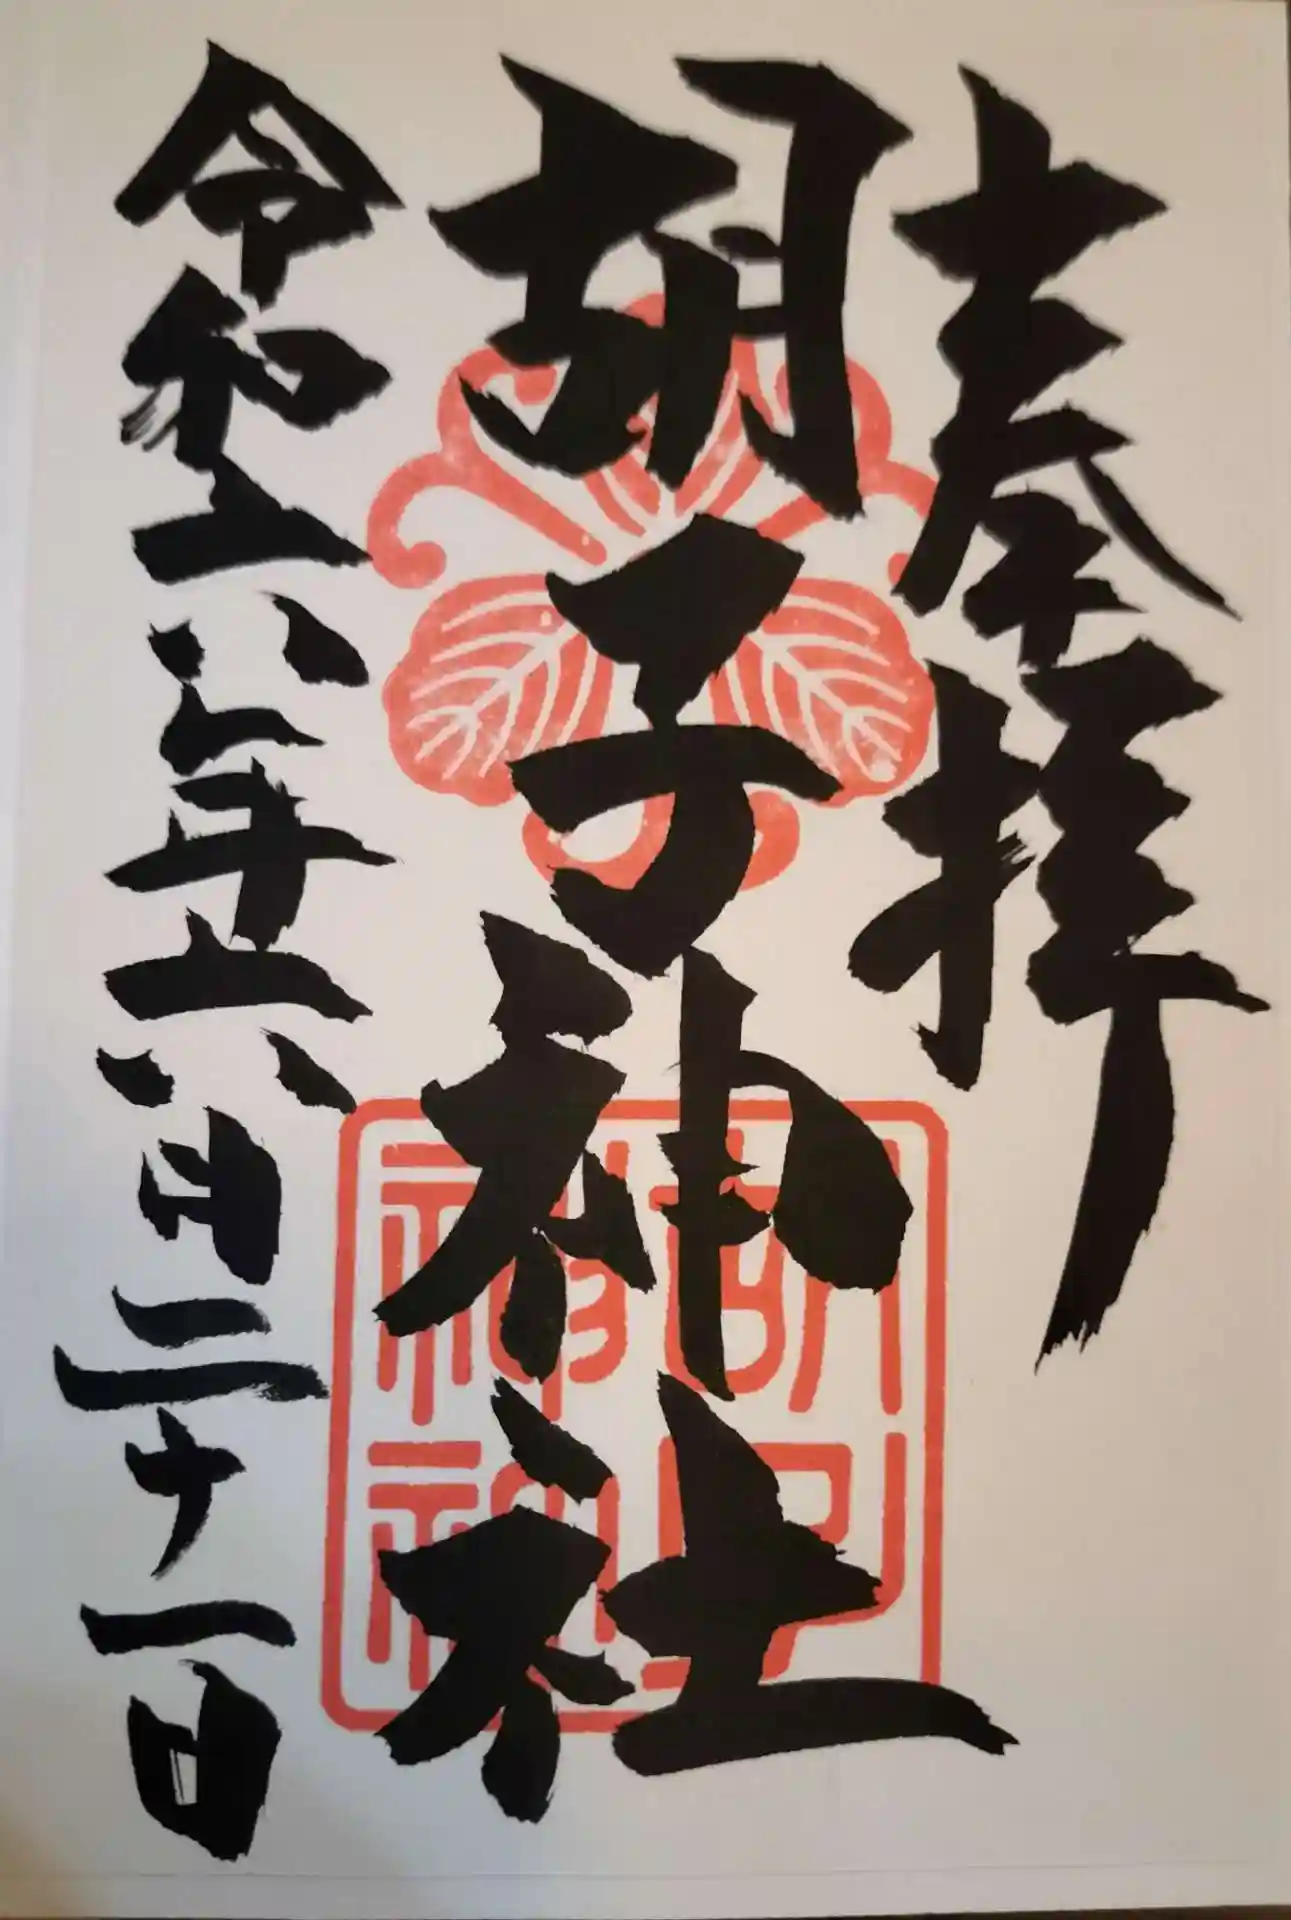 奉拝
胡子神社
令和六年六月二十一日
胡子神社